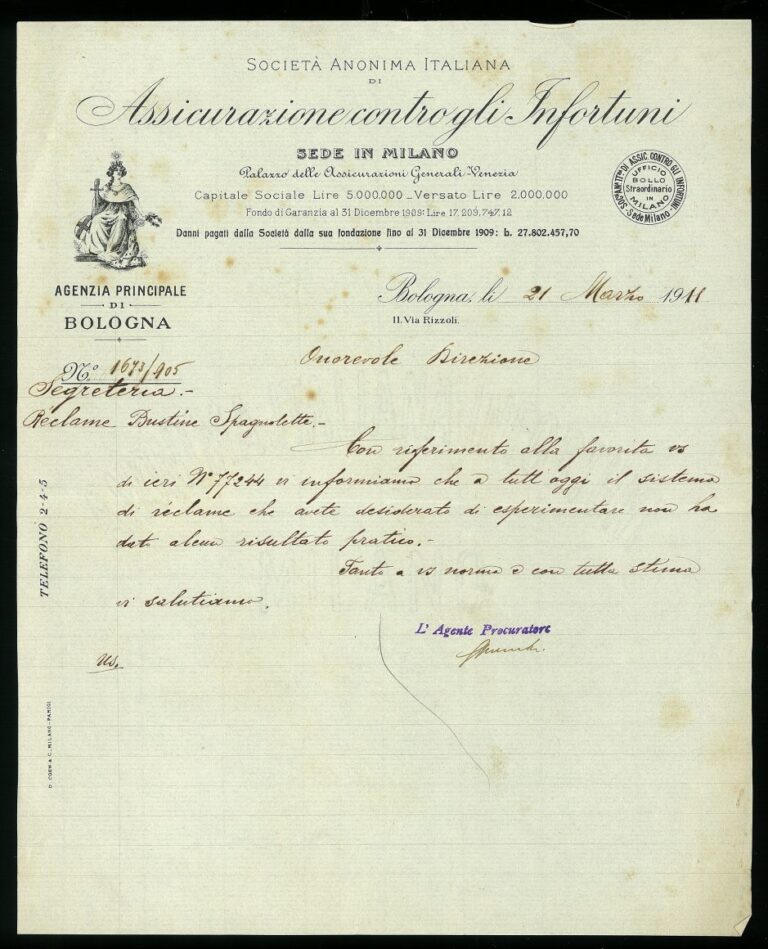 SOCIETÀ ANONIMA ITALIANA
DI
Assicurazione contro gli Infortuni
SEDE IN MILANO
Palazzo delle Assicurazioni Generali-Venezia
Capitale Sociale Lire 5.000.000 _ Versato Lire 2.000.000
Fondo di Garanzia al 31 Dicembre 1909: Lire 17.209.747.12
Danni pagati dalla Società dalla sua fondazione fino al 31 Dicembre 1909: L. 27.802.457,70
SOC. AN. IT. DI ASSIC. CONTRO GLI INFORTUNI
UFFICIO
BOLLO
Straordinario
IN
MILANO
Sede Milano
AGENZIA PRINCIPALE
DI
BOLOGNA
Bologna, li 21 Marzo 1911
11. Via Rizzoli.
N.º 1673/905
Onorevole Direzione
Segreteria.-
Reclame Bustine Spagnolette.-
Con riferimento alla favorita vs
di ieri Nº 77244 vi informiamo che a tutt'oggi il sistema
di réclame che avete desiderato di esperimentare non ha
dato alcun risultato pratico.-
Tanto a vs norma e con tutta stima
vi salutiamo.
L'Agente Procuratore
TELEFONO 2-4-5
& C. MILANO-PARIGI